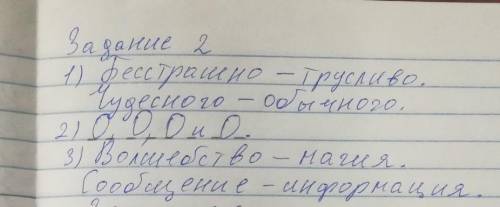 Задание 2
1) Бесстрашно – трусливо.
Чудесного – обычного.
2) О, О, О и О.
3) Волшебство – магия.
Сообщение – информация.